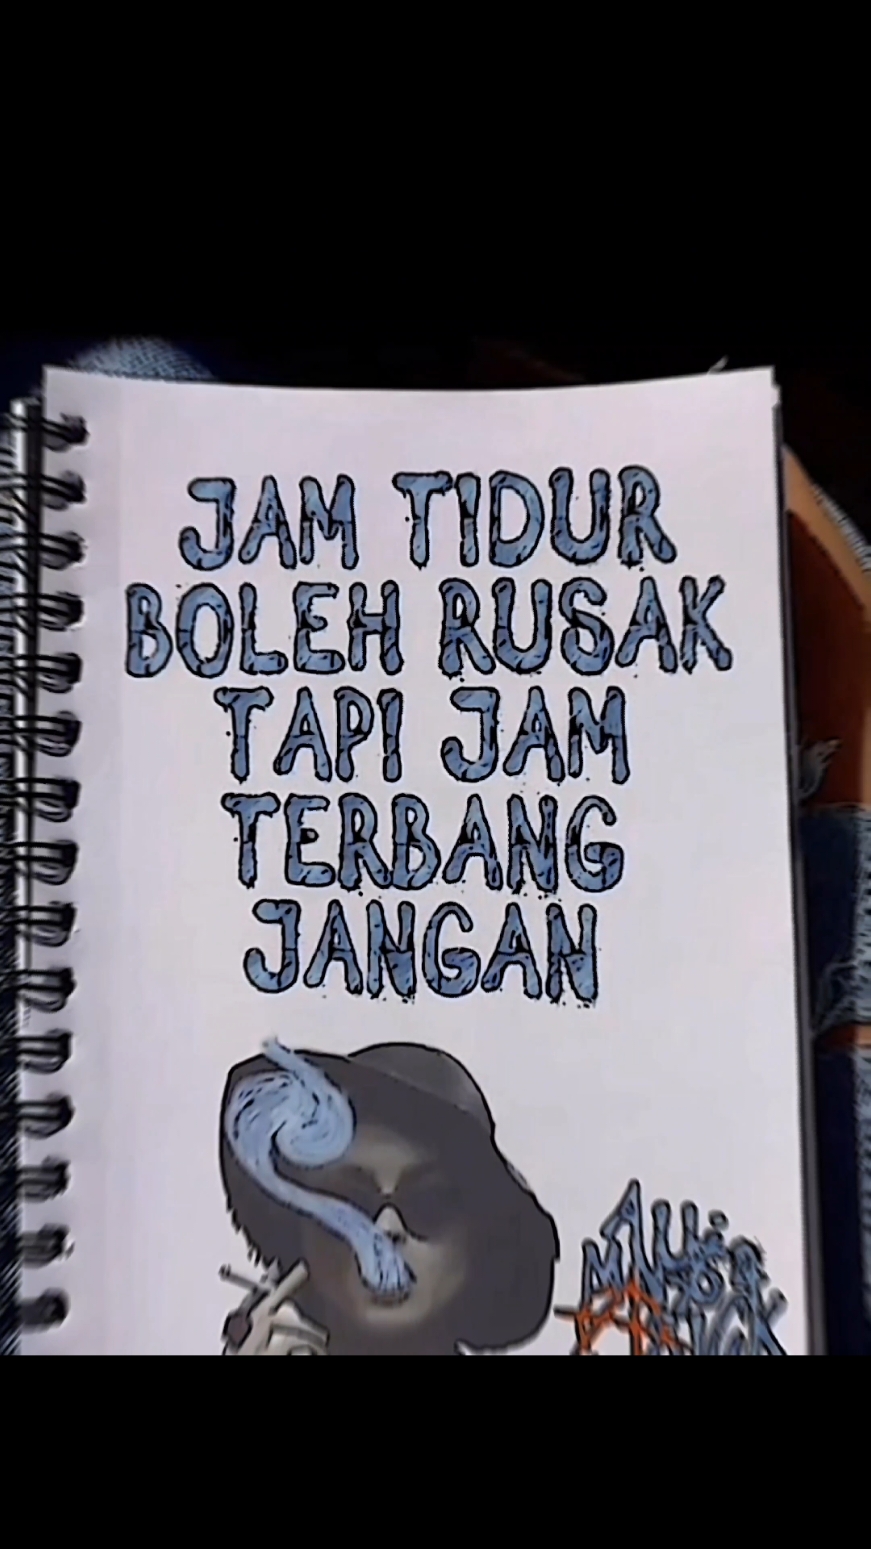 JAM TIDUR
BOLEH RUSAK
TAPI JAM
TERBANG
JANGAN